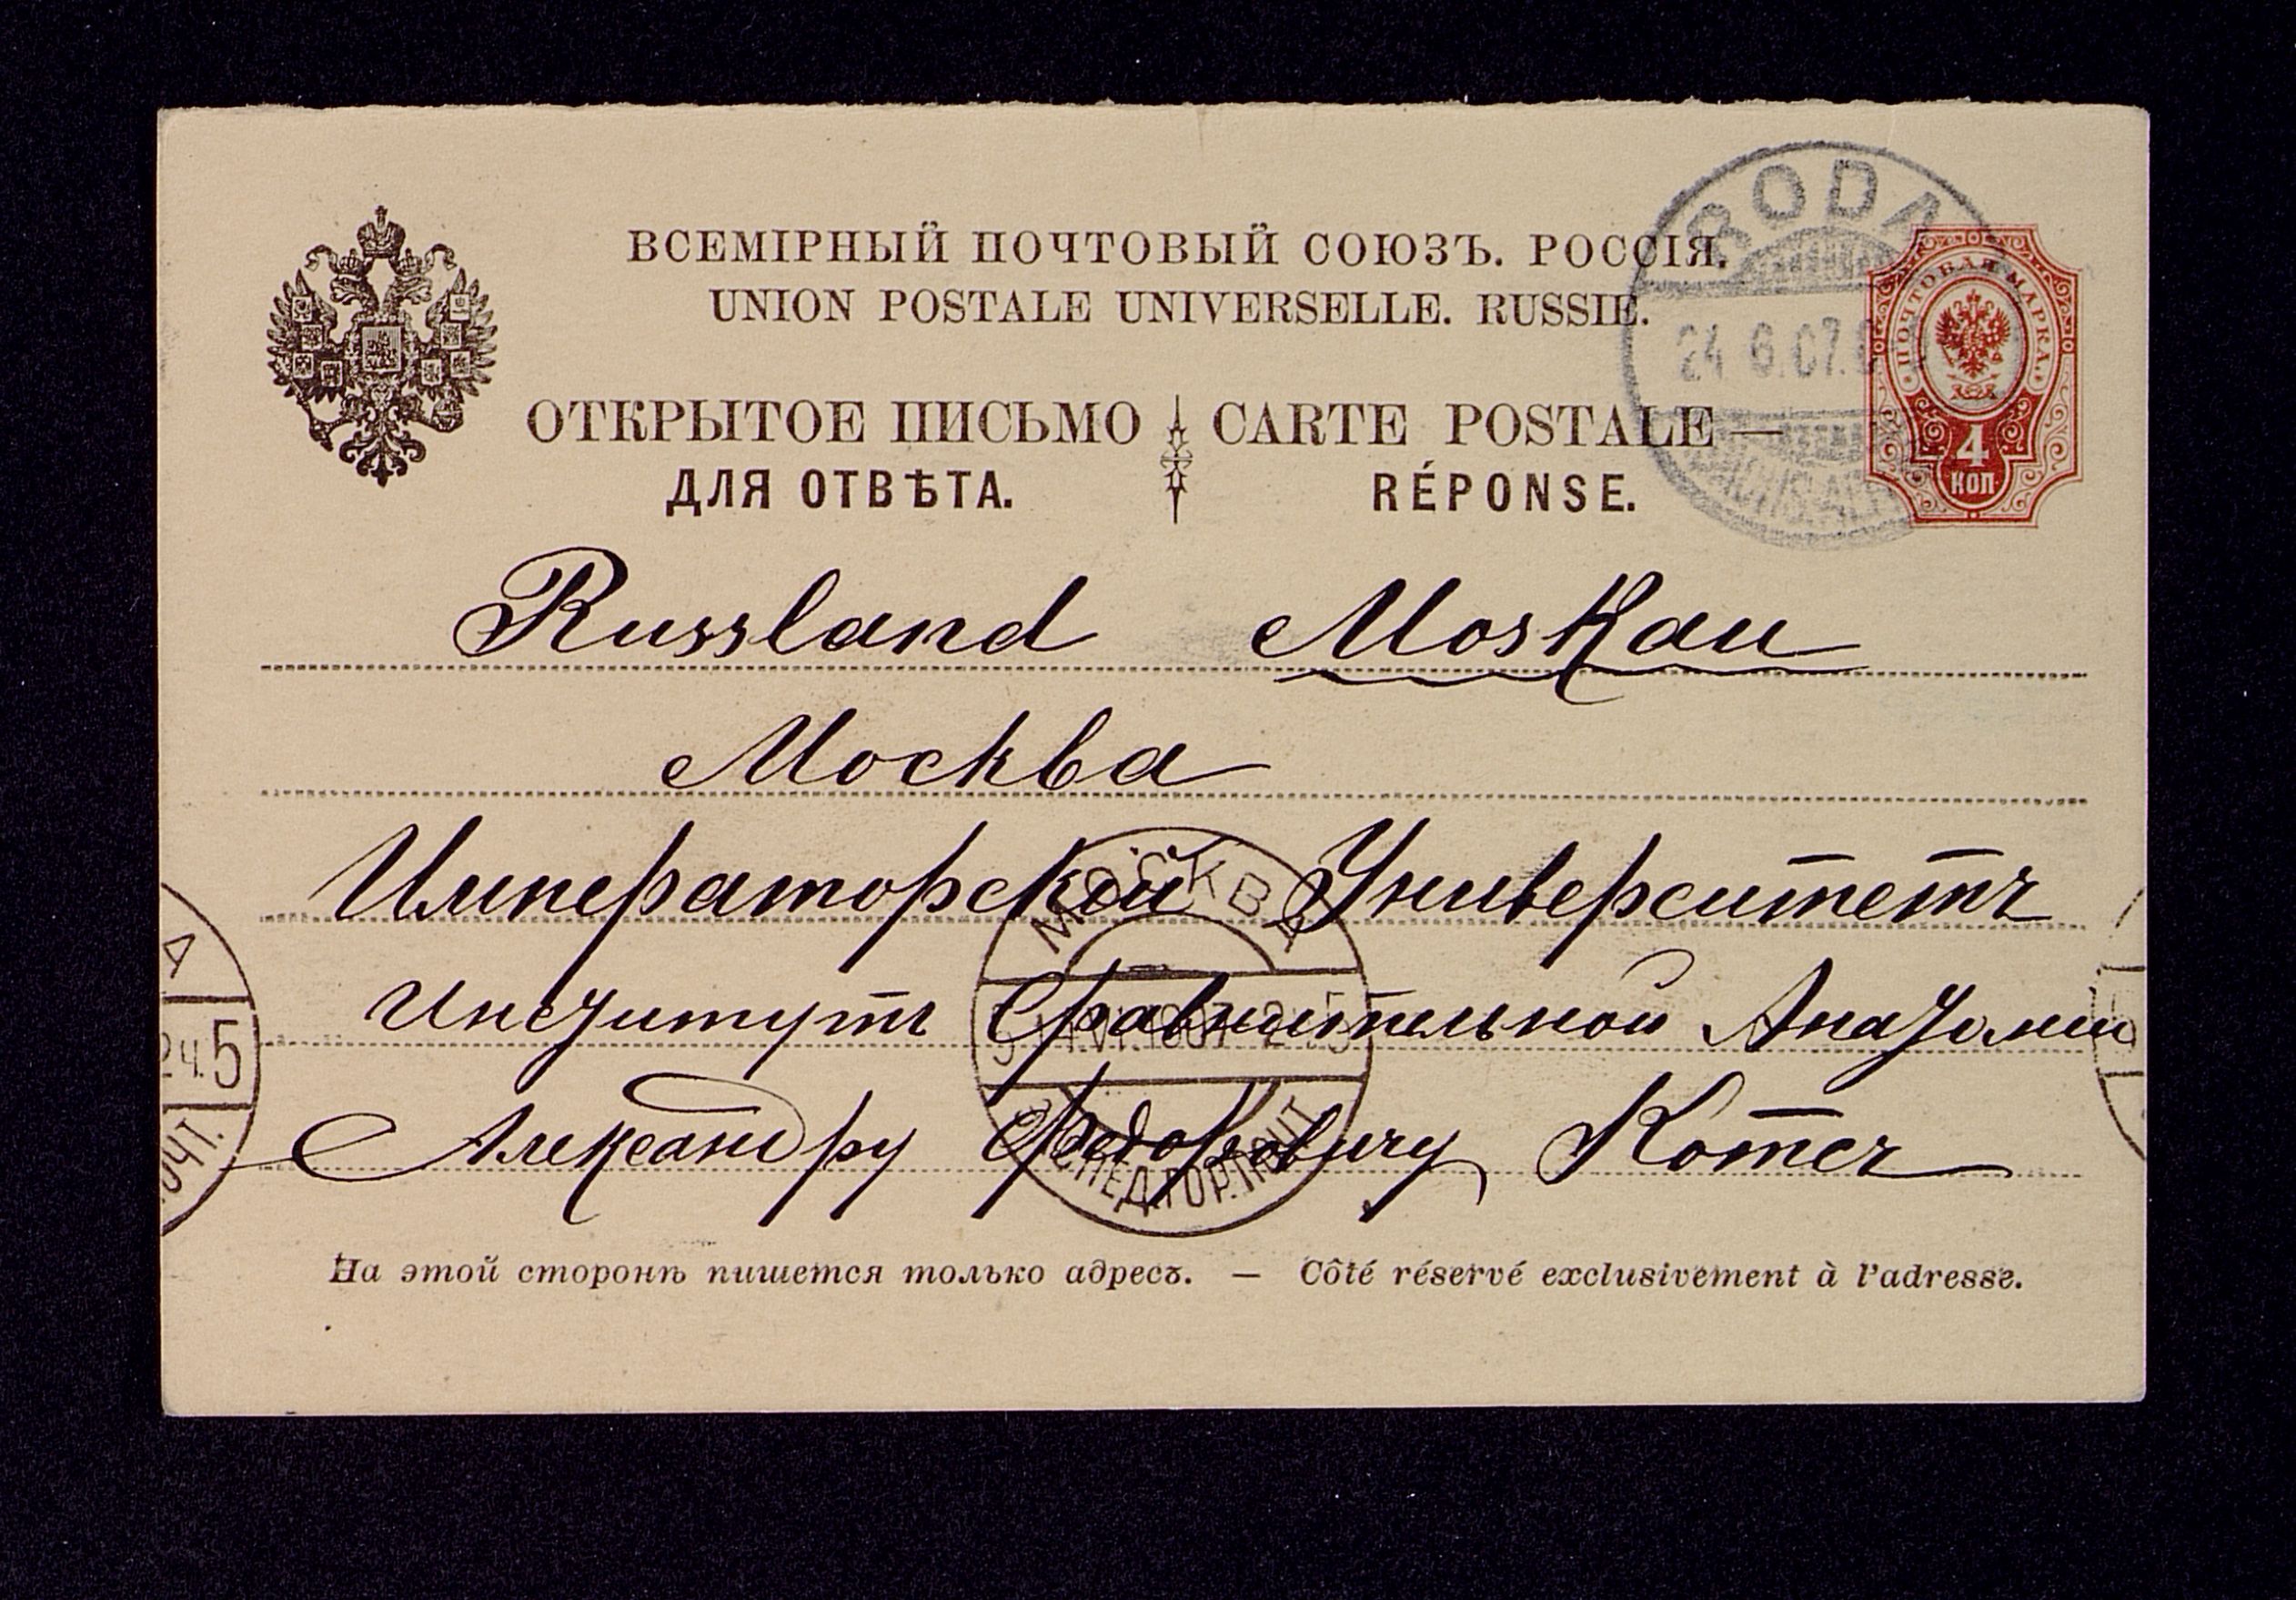 ВСЕМІРНЫЙ ПОЧТОВЫЙ СОЮЗЪ. РОССІЯ.
UNION POSTALE UNIVERSELLE. RUSSIE.
RODA
24 6.07.
ПОЧТОВАЯ МАРКА.
4
КОП
ОТКРЫТОЕ ПИСЬМО CARTE POSTALE —
ДЛЯ ОТВѢТА. RÉPONSE.
Russland Moskau
Москва
Императорскій Университетъ
Институтъ Сравнительной Анатоміи
Александру Федоровичу Котсъ
МОСКВА
А
24.5
ПОЧТ.
На этой сторонѣ пишется только адресъ. — Côté réservé exclusivement à l'adresse.